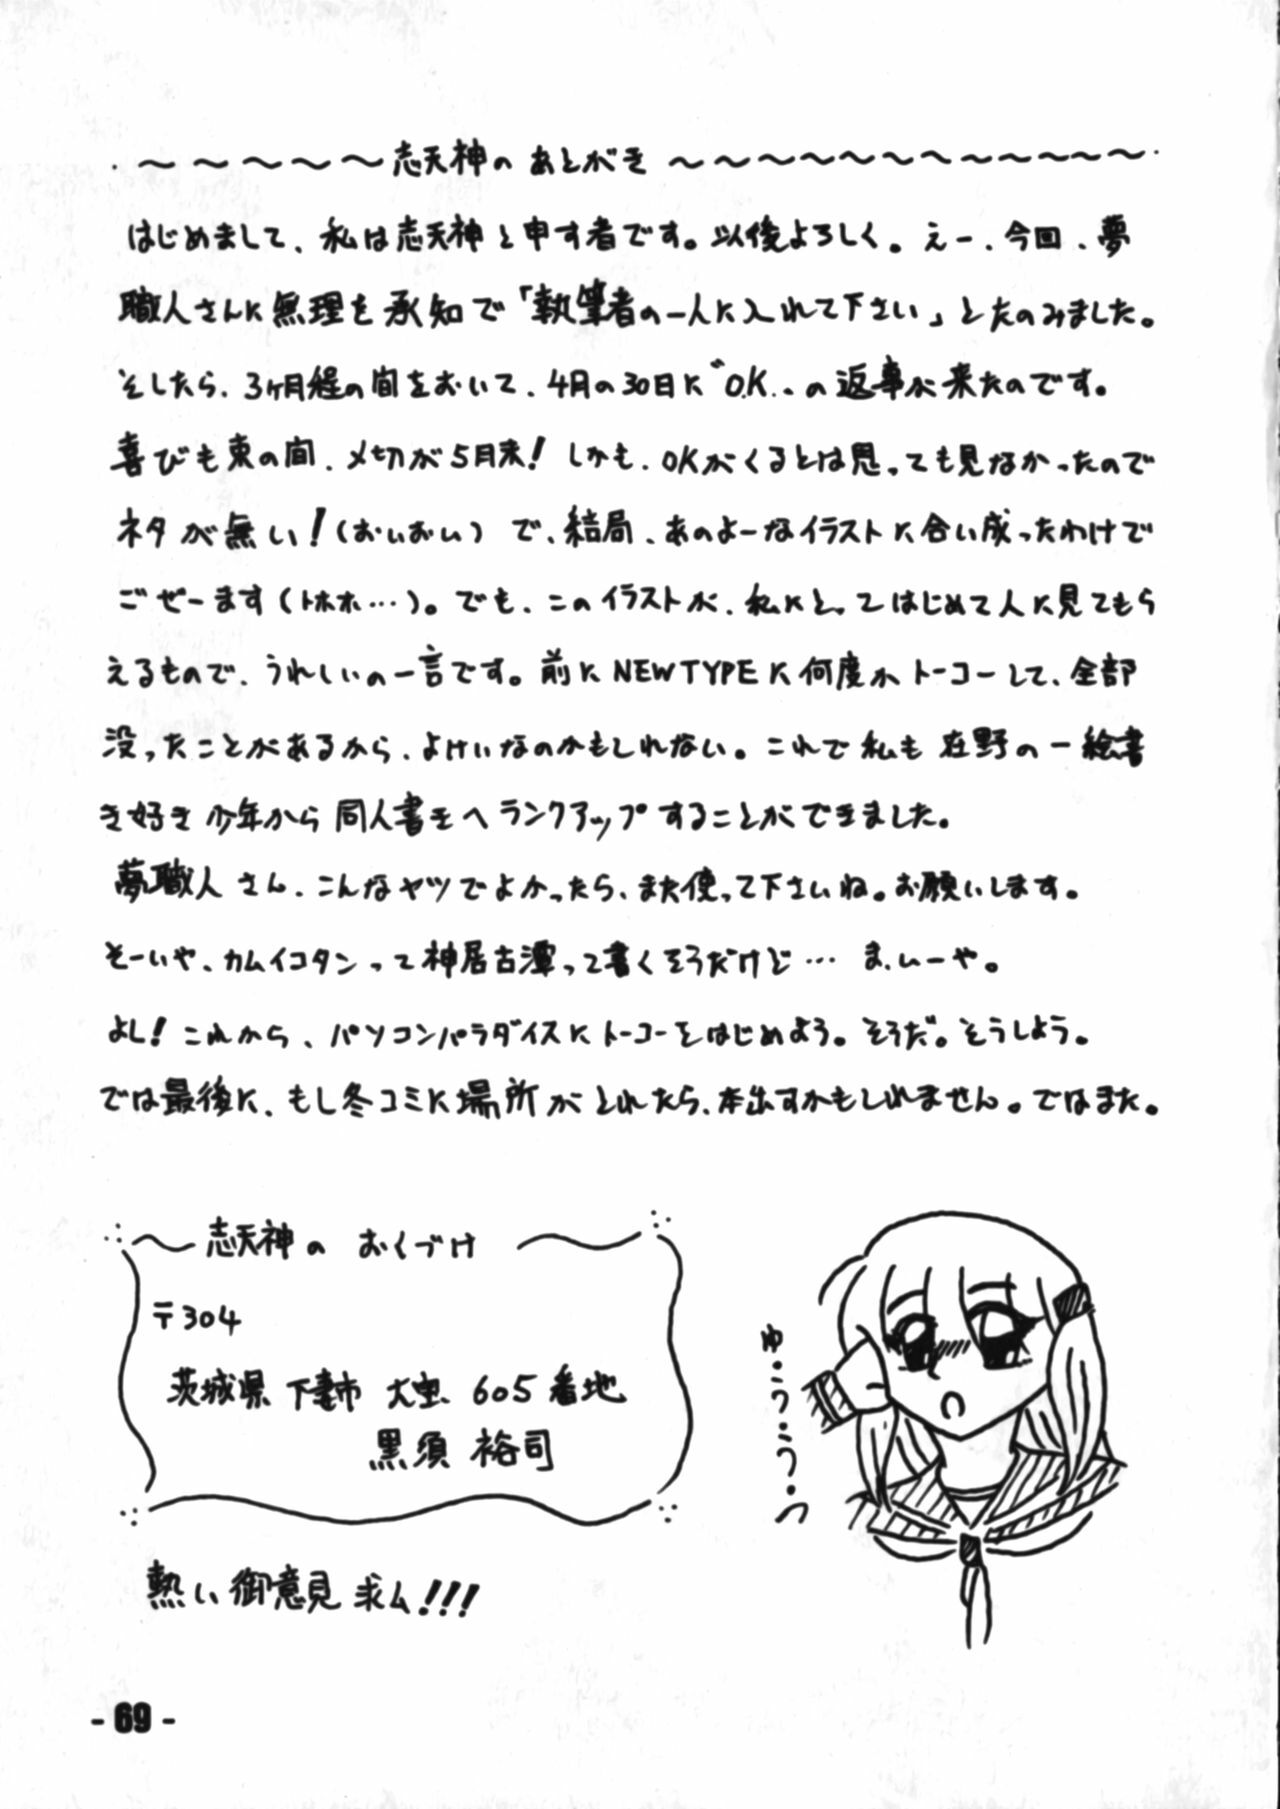 ～～～～～志天神の あとがき～～～～～～～～～～～～
はじめまして、私は志天神と申す者です。以後よろしく。えー、今回、夢
職人さんに無理を承知で「執筆者の一人に入れて下さい」とたのみました。
そしたら、3ヶ月程の間をおいて、4月の30日に〝O.K.〟の返事が来たのです。
喜びも束の間、〆切が5月末！しかも、OKがくるとは思っても見なかったので
ネタが無い！（おいおい）で、結局、あのよーなイラストに合い成ったわけで
ごぜーます（トホホ…）。でも、このイラストが、私にとってはじめて人に見てもら
えるもので、うれしいの一言です。前にNEWTYPEに何度かトーコーして、全部
没ったことがあるから、よけいなのかもしれない。これで私も在野の一絵書
き好き少年から同人書きへランクアップすることができました。
夢職人さん、こんなヤツでよかったら、また使って下さいね。お願いします。
そーいや、カムイコタンって神居古潭って書くそうだけど… ま、いーや。
よし！これから、パソコンパラダイスにトーコーをはじめよう。そうだ。そうしよう。
では最後に、もし冬コミに場所がとれたら、本出すかもしれません。ではまた。
～志天神の おくづけ～
〒304
茨城県 下妻市 大宝 605番地
黒須 裕司
熱い御意見求ム!!!
ゆ・う・う・つ
- 69 -